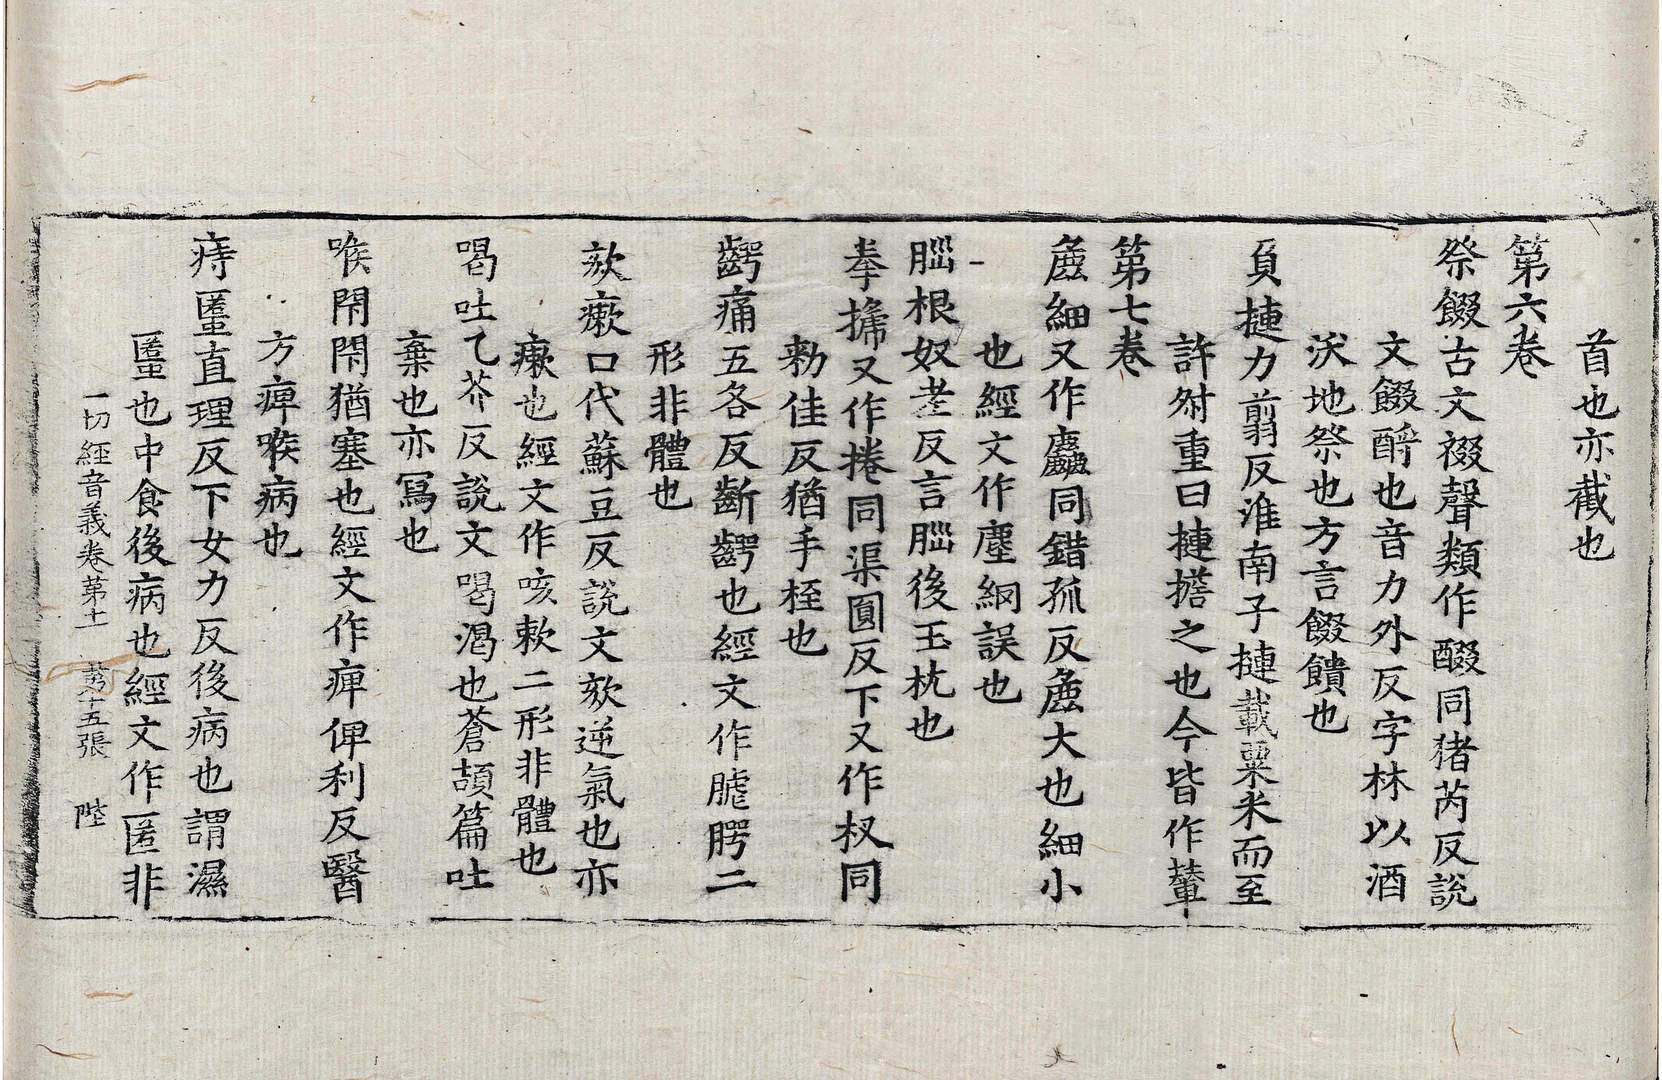 首也亦截也
第六卷
祭餟古文裰聲類作醊同猪芮反說
文餟酹也音力外反字林以酒
沃地祭也方言餟饋也
負摙力翦反淮南子摙載粟米而至
許𠰻重曰摙擔之也今皆作輦
第七卷
麁細又作麤同錯孤反麁大也細小
也經文作塵細誤也
𦛁根奴老反言𦛁後玉枕也
拳攠又作捲同渠圓反下又作杈同
勑佳反猶手桎也
齶痛五各反齗齶也經文作臄腭二
形非體也
欬瘶口代蘇豆反說文欬逆氣也亦
瘶也經文作咳欶二形非體也
喝吐乙芥反說文喝渴也蒼頡篇吐
棄也亦寫也
喉閇閇猶塞也經文作痺俾利反醫
方痺喉病也
痔䘌直理反下女力反後病也謂濕
䘌也中食後病也經文作匿非
一切經音義卷第十一 第十五張 陛